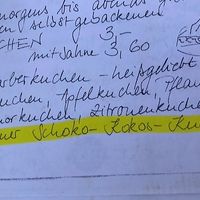 morgens bis abends
en selbst gebackenen
CHEN 3,-
mit Sahne 3,60
arberkuchen - heißgeliebt
uchen, Apfelkuchen, Pflau
norkuchen, Zitronenkuche
ner Schoko-Kokos-Ku